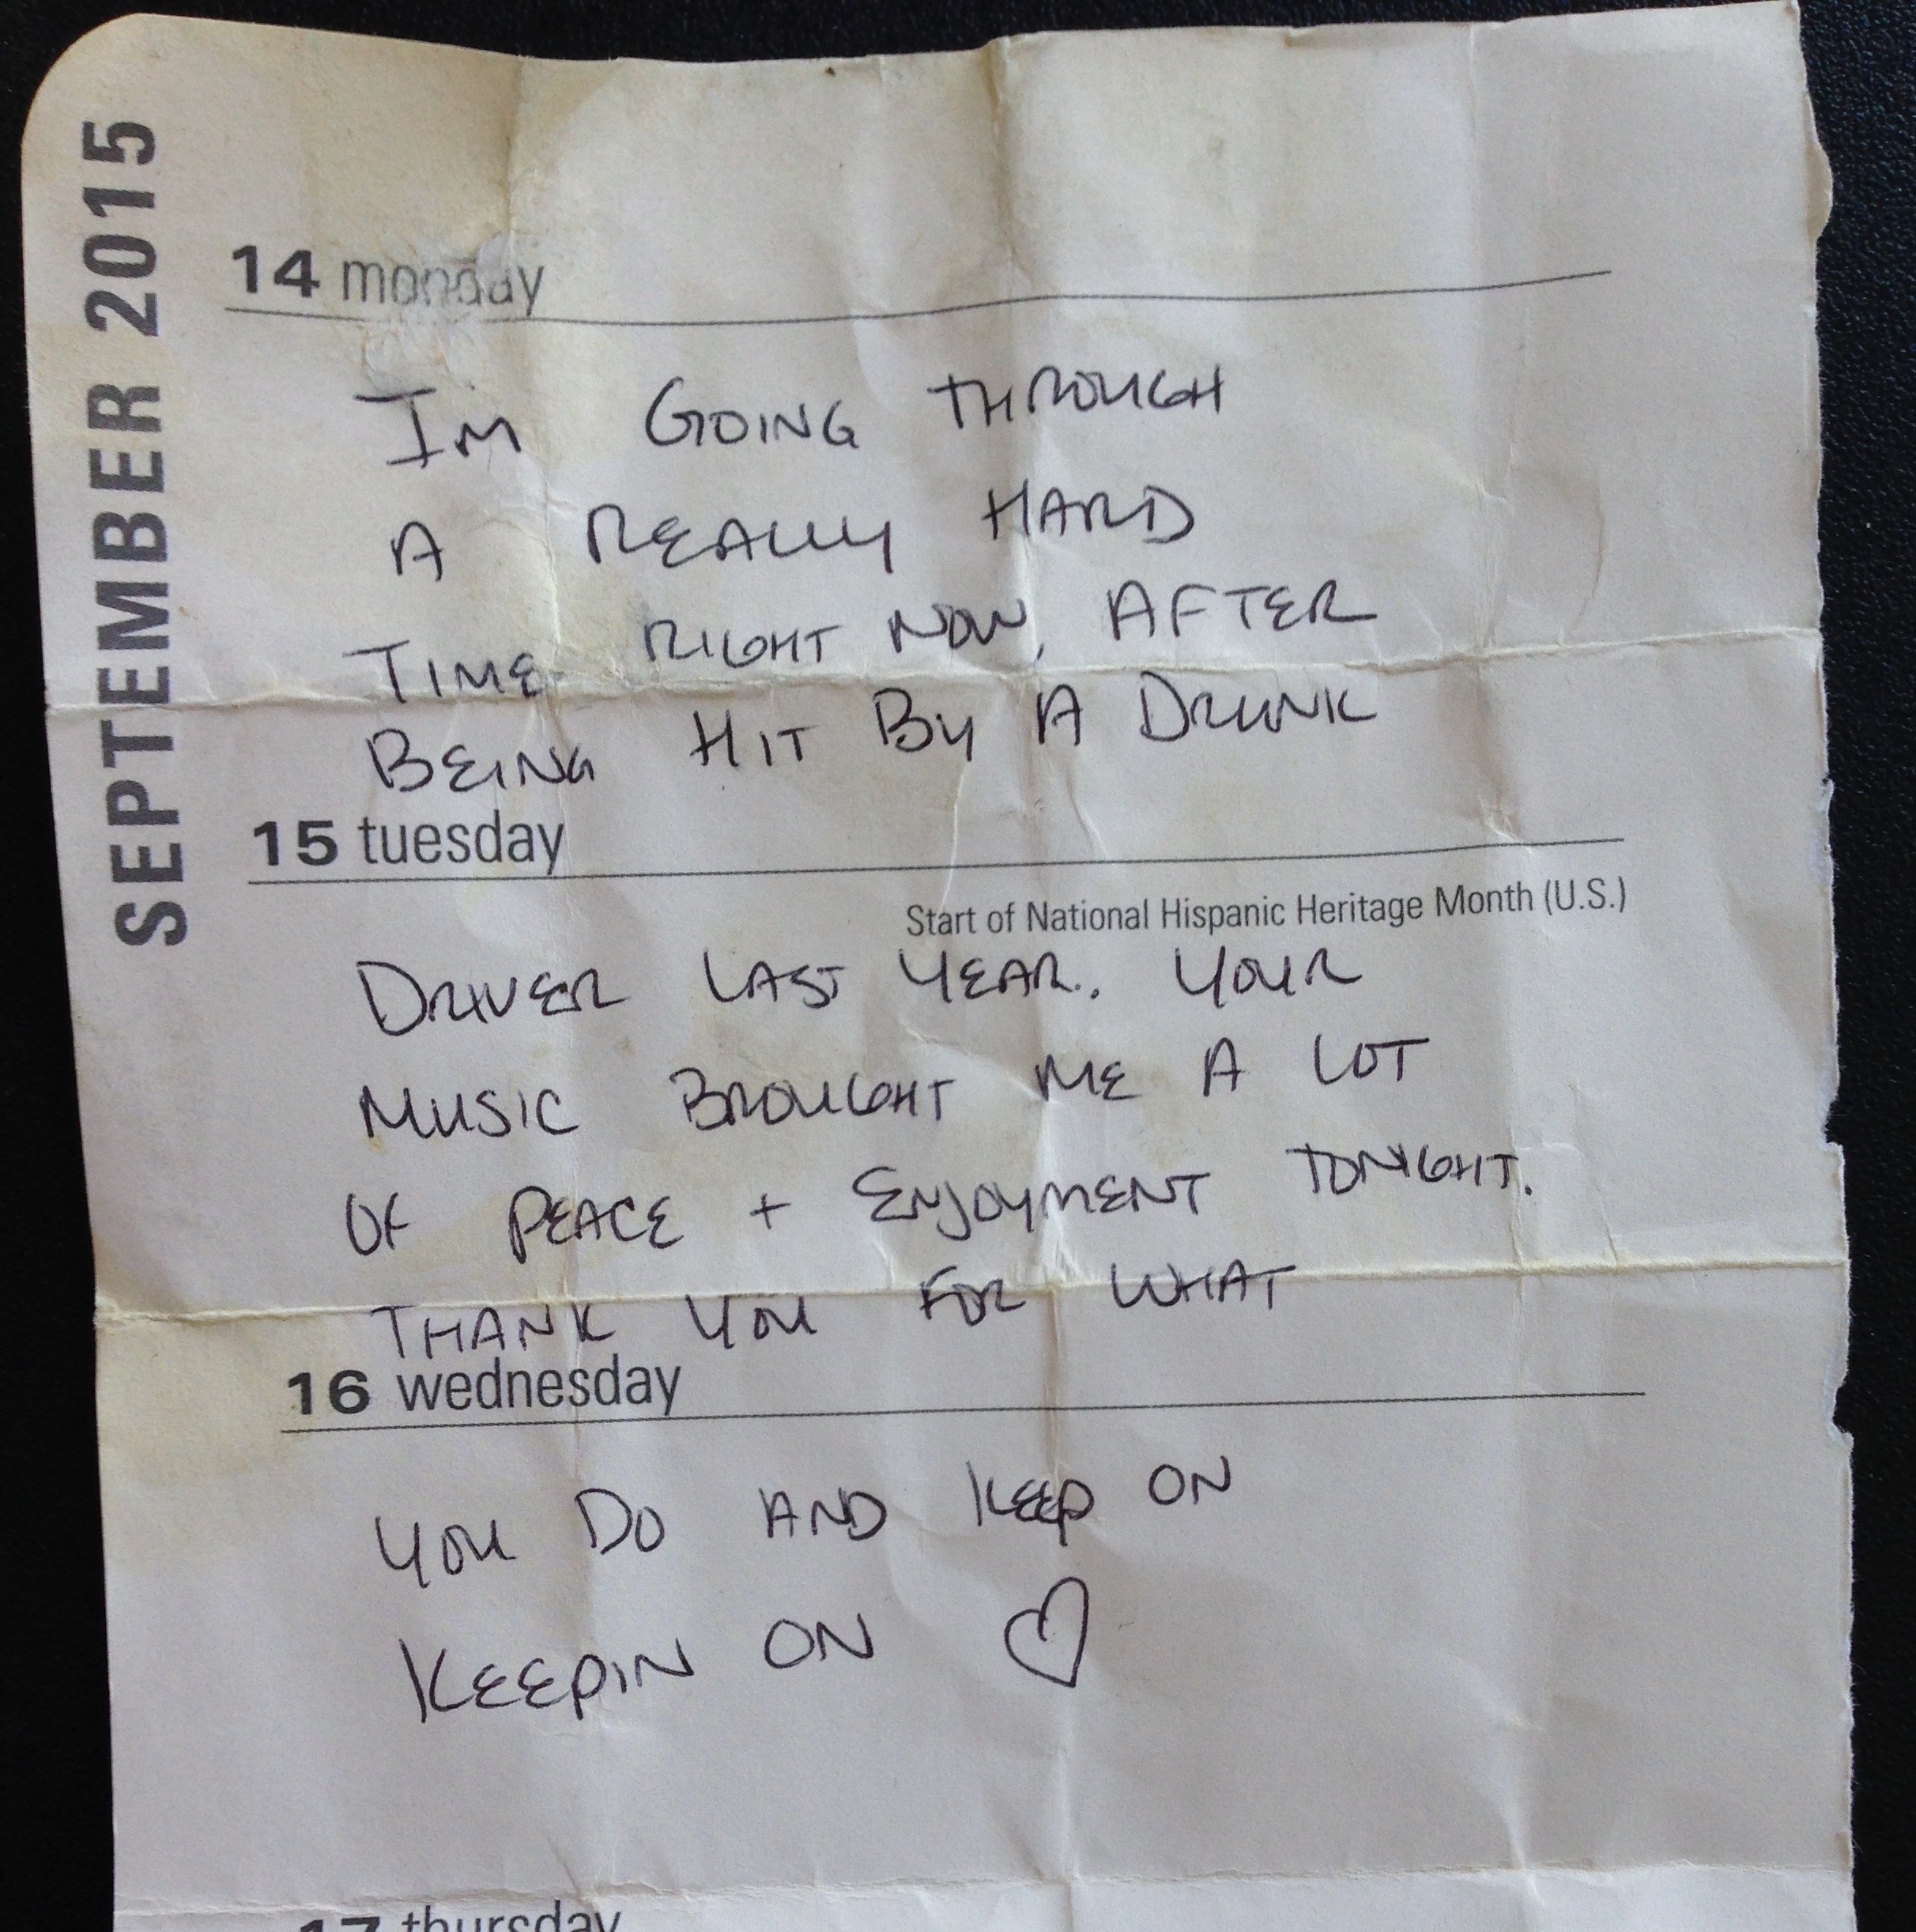 SEPTEMBER 2015
14 monday
IM GOING THROUGH
A REALLY HARD
TIME RIGHT NOW, AFTER
BEING HIT BY A DRUNK
15 tuesday
Start of National Hispanic Heritage Month (U.S.)
DRIVER LAST YEAR. YOUR
MUSIC BROUGHT ME A LOT
OF PEACE + ENJOYMENT TONIGHT.
THANK YOU FOR WHAT
16 wednesday
YOU DO AND KEEP ON
KEEPIN ON ♡
17 thursday